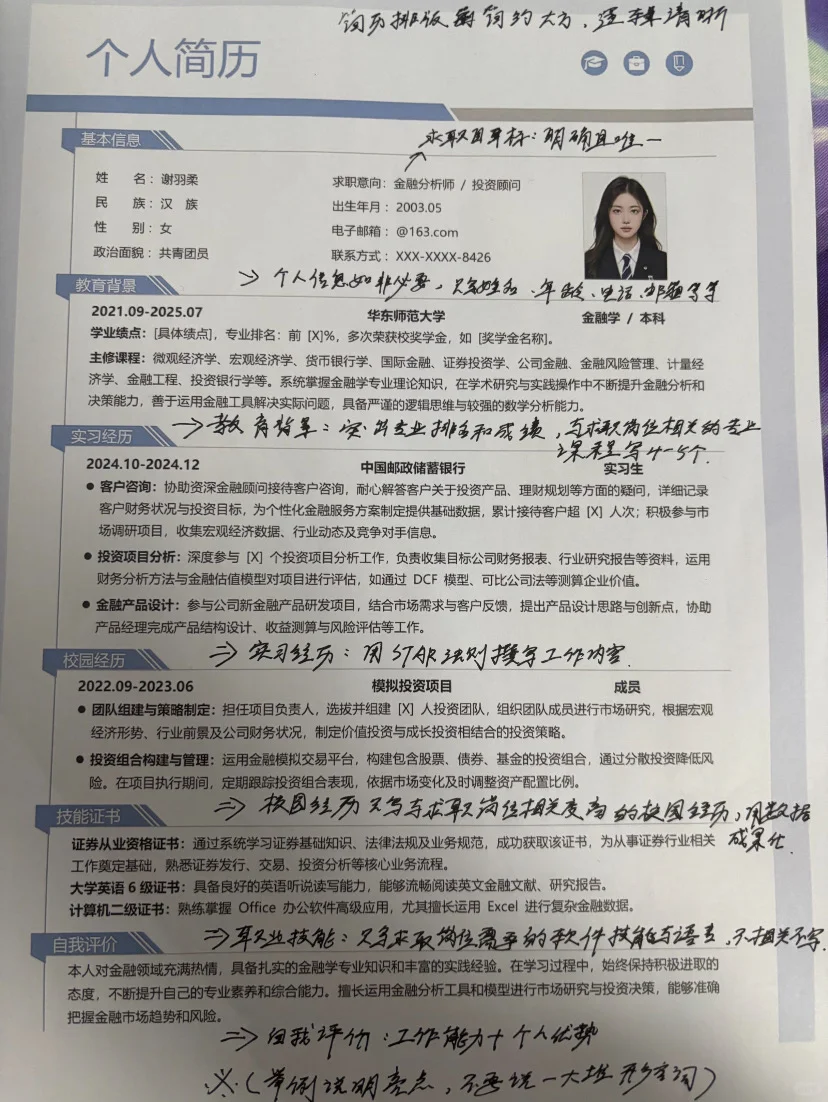 简历排版要简约大方，逻辑清晰
个人简历
求职目标：明确且唯一
基本信息
姓 名：谢羽柔
求职意向：金融分析师 / 投资顾问
民 族：汉 族
出生年月：2003.05
性 别：女
电子邮箱：@163.com
政治面貌：共青团员
联系方式：XXX-XXXX-8426
→ 个人信息如非必要，只写姓名、年龄、电话、邮箱等等
教育背景
2021.09-2025.07 华东师范大学 金融学 / 本科
学业绩点：[具体绩点]，专业排名：前 [X]%，多次荣获校奖学金，如 [奖学金名称]。
主修课程：微观经济学、宏观经济学、货币银行学、国际金融、证券投资学、公司金融、金融风险管理、计量经
济学、金融工程、投资银行学等。系统掌握金融学专业理论知识，在学术研究与实践操作中不断提升金融分析和
决策能力，善于运用金融工具解决实际问题，具备严谨的逻辑思维与较强的数学分析能力。
→ 教育背景：突出专业排名和成绩，与求职岗位相关的专业
课程写4-5个.
实习经历
2024.10-2024.12 中国邮政储蓄银行 实习生
● 客户咨询：协助资深金融顾问接待客户咨询，耐心解答客户关于投资产品、理财规划等方面的疑问，详细记录
客户财务状况与投资目标，为个性化金融服务方案制定提供基础数据，累计接待客户超 [X] 人次；积极参与市
场调研项目，收集宏观经济数据、行业动态及竞争对手信息。
● 投资项目分析：深度参与 [X] 个投资项目分析工作，负责收集目标公司财务报表、行业研究报告等资料，运用
财务分析方法与金融估值模型对项目进行评估，如通过 DCF 模型、可比公司法等测算企业价值。
● 金融产品设计：参与公司新金融产品研发项目，结合市场需求与客户反馈，提出产品设计思路与创新点，协助
产品经理完成产品结构设计、收益测算与风险评估等工作。
⇒ 实习经历：用STAR法则撰写工作内容.
校园经历
2022.09-2023.06 模拟投资项目 成员
● 团队组建与策略制定：担任项目负责人，选拔并组建 [X] 人投资团队，组织团队成员进行市场研究，根据宏观
经济形势、行业前景及公司财务状况，制定价值投资与成长投资相结合的投资策略。
● 投资组合构建与管理：运用金融模拟交易平台，构建包含股票、债券、基金的投资组合，通过分散投资降低风
险。在项目执行期间，定期跟踪投资组合表现，依据市场变化及时调整资产配置比例。
⇒ 校园经历只写与求职岗位相关度高的校园经历，用数据
成果化.
技能证书
证券从业资格证书：通过系统学习证券基础知识、法律法规及业务规范，成功获取该证书，为从事证券行业相关
工作奠定基础，熟悉证券发行、交易、投资分析等核心业务流程。
大学英语 6 级证书：具备良好的英语听说读写能力，能够流畅阅读英文金融文献、研究报告。
计算机二级证书：熟练掌握 Office 办公软件高级应用，尤其擅长运用 Excel 进行复杂金融数据。
⇒ 职业技能：只写求职岗位需要的软件技能与语言，不相关不写.
自我评价
本人对金融领域充满热情，具备扎实的金融学专业知识和丰富的实践经验。在学习过程中，始终保持积极进取的
态度，不断提升自己的专业素养和综合能力。擅长运用金融分析工具和模型进行市场研究与投资决策，能够准确
把握金融市场趋势和风险。
⇒ 自我评价：工作能力+个人优势
※（举例说明亮点，不要说一大堆形容词）